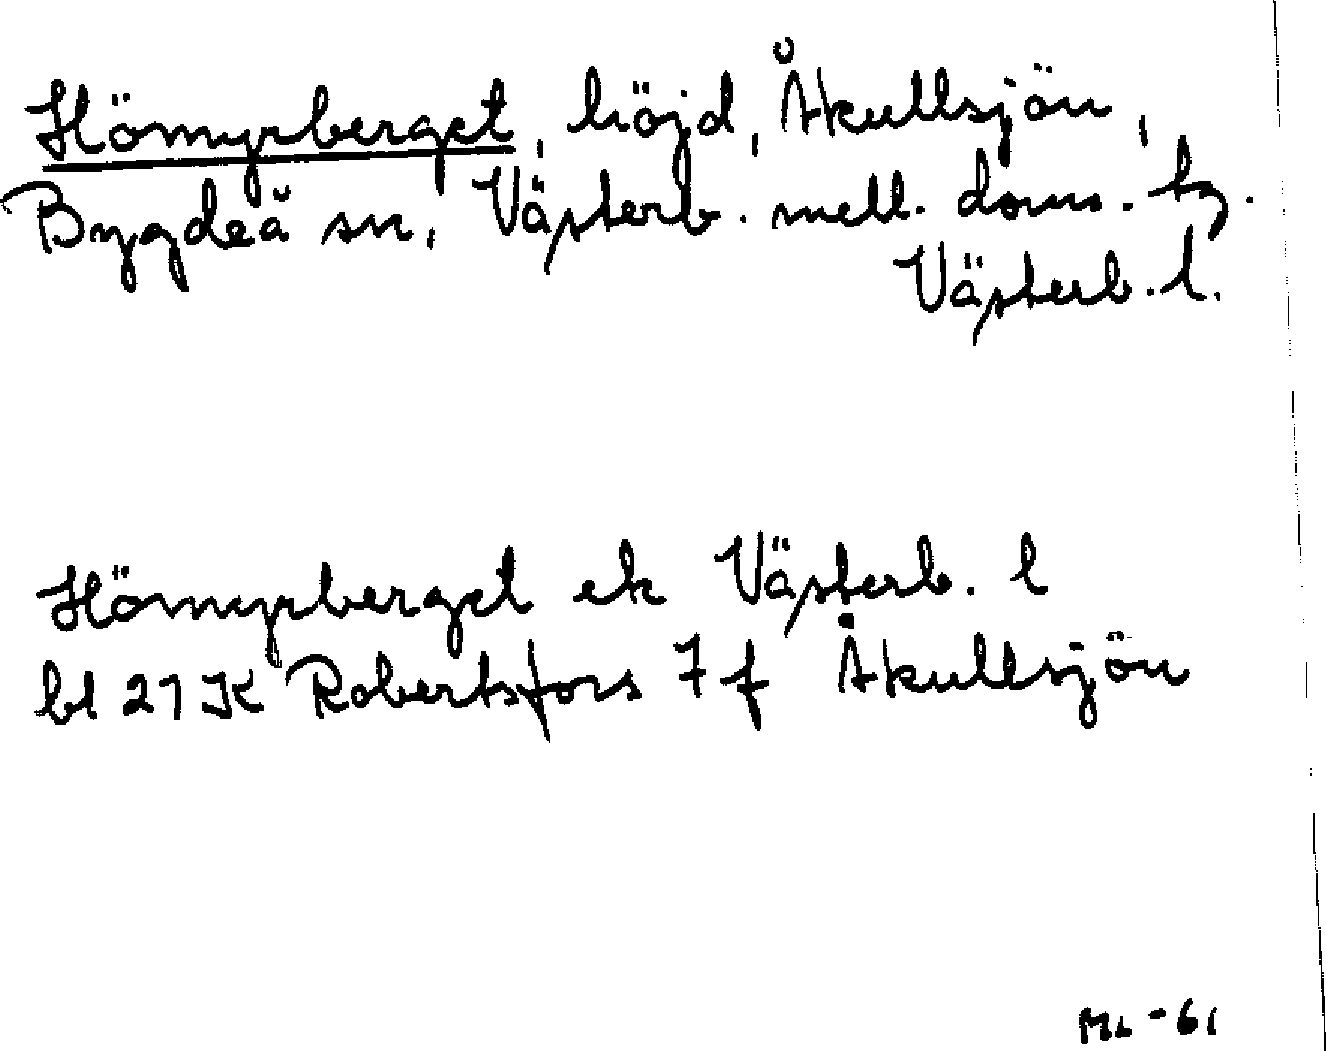 Hömyrberget, höjd, Åkullsjön,
Bygdeå sn, Västerb. mell. doms. tg.
Västerb. l.
Hömyrberget ek Västerb. l
bl 21 K Robertsfors 7 f Åkullsjön
ML -61